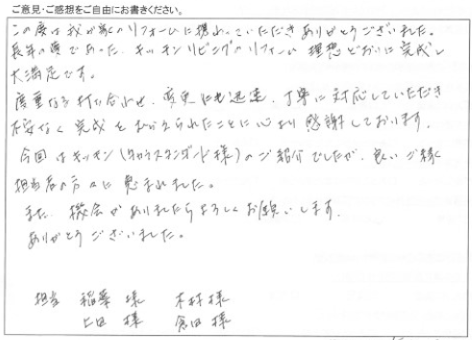 ご意見・ご感想をご自由にお書きください。
この度は我が家のリフォームに携わっていただきありがとうございました。
長年の夢であった、キッチンリビングのリフォーム 理想どおりに完成し
大満足です。
度重なる打ち合わせ、変更にも迅速、丁寧に対応していただき
不安なく完成をむかえられたことに心より感謝しております。
今回はキッチン(タカラスタンダード様)のご紹介でしたが、良いご縁
担当者の方々に恵まれました。
また、機会がありましたらよろしくお願いします。
ありがとうございました。
担当 稲葉様 木村様
上田様 倉田様